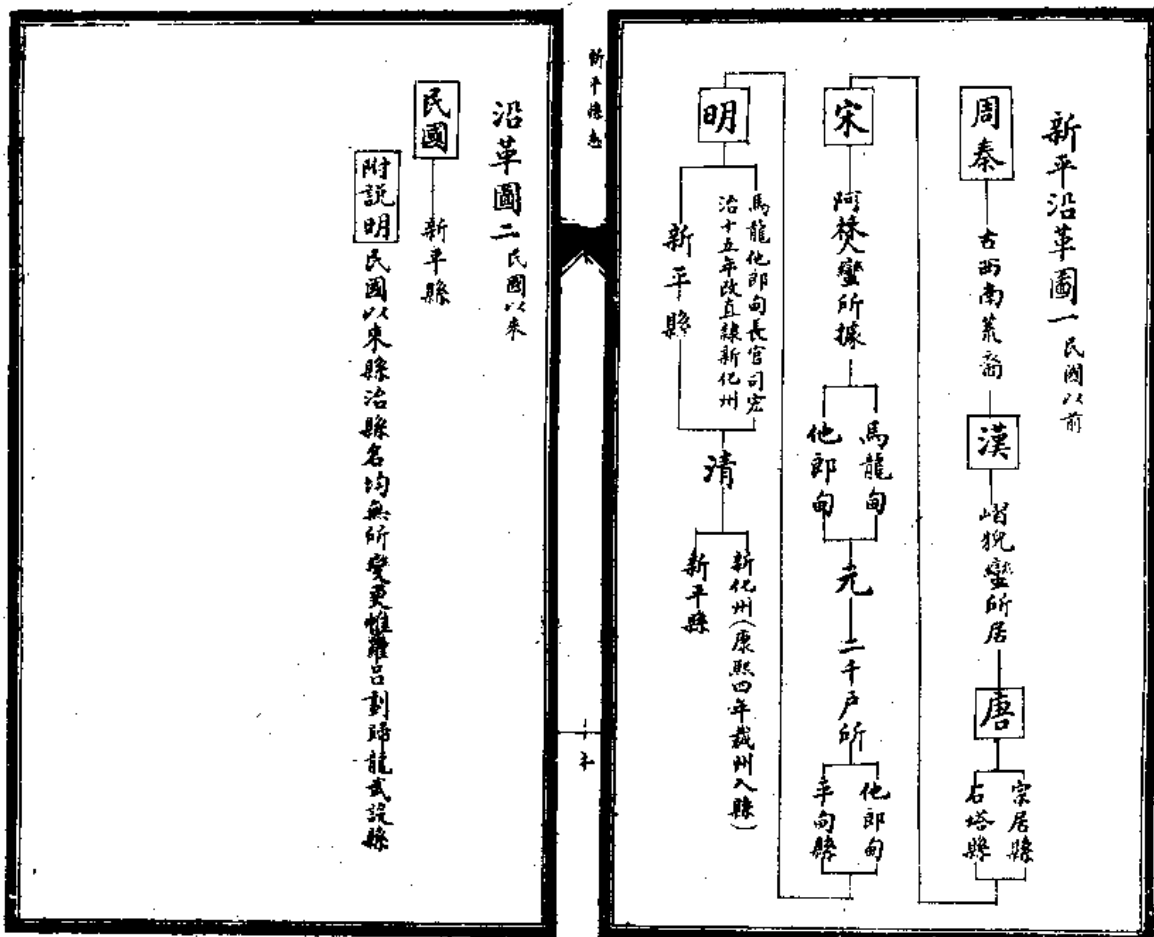 新平沿革圖一 民國以前
周秦
古西南荒裔
漢
嶍猊蠻所居
唐
宗居縣
石塔縣
宋
阿僰蠻所據
馬龍甸
他郎甸
元
二千户所
他郎甸
平甸縣
明
馬龍他郎甸長官司宏
治十五年改直隸新化州
新平縣
清
新化州(康熙四年裁州入縣)
新平縣
新平縣志
沿革圖二 民國以來
民國
新平縣
附説明 民國以來縣治縣名均無所變更惟羅吕劃歸龍武設縣